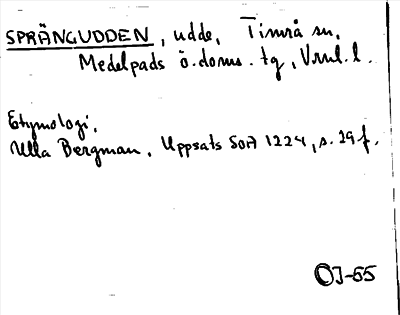 SPRÄNGUDDEN, udde, Timrå sn,
Medelpads ö. doms. tg, Vnrl. l.
Etymologi,
Ulla Bergman, Uppsats SOA 1224, s. 29 f.
OJ-65